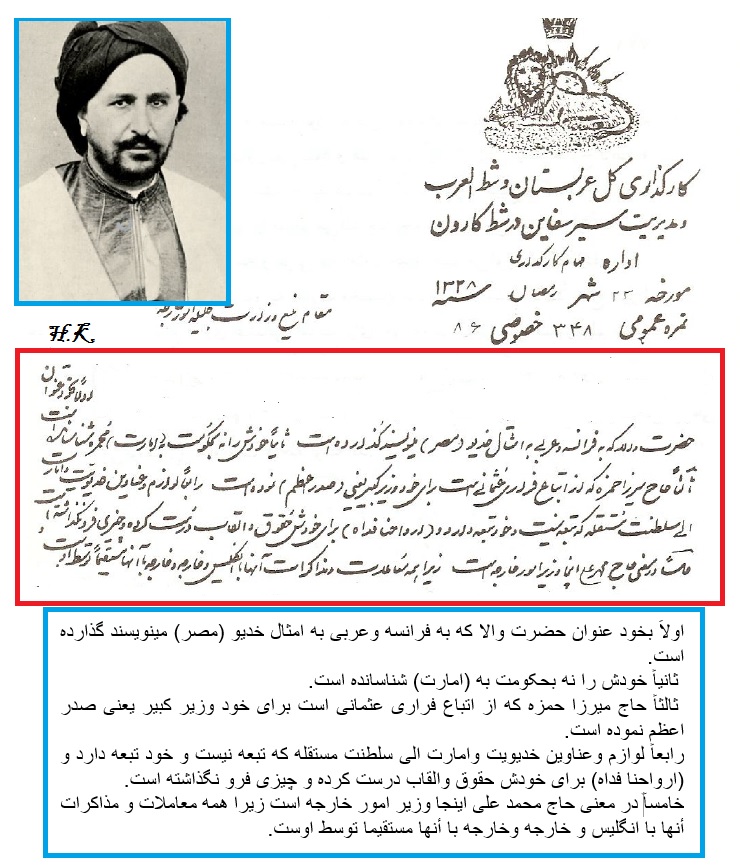 کارگذاری کل عربستان و شط العرب
و مدیریت سیر سفاین در شط کارون
اداره مهام کارگذاری
مورخه ۲۳ شهر رمضان سنه ۱۳۲۸
نمره عمومی ۳۴۸ خصوصی ۸۶
مقام منیع وزارت جلیله امور خارجه
H.K.
اولاً بخود عنوان
حضرت والا که به فرانسه و عربی به امثال خدیو (مصر) مینویسند گذارده است ثانیاً خودش را نه بحکومت به (امارت) محمره شناسانده است
ثالثاً حاج میرزا حمزه که از اتباع فراری عثمانی است برای خود وزیر کبیر یعنی (صدر اعظم) نموده است رابعاً لوازم و عناوین خدیویت و امارت
الی سلطنت مستقله که تبعه نیست و خود تبعه دارد و (ارواحنا فداه) برای خودش حقوق و القاب درست کرده و چیزی فرو نگذاشته است
خامساً در معنی حاج محمد علی اینجا وزیر امور خارجه است زیرا همه معاملات و مذاکرات آنها با انگلیس و خارجه و خارجه با آنها مستقیماً توسط اوست
اولاً بخود عنوان حضرت والا که به فرانسه وعربی به امثال خدیو (مصر) مینویسند گذارده
است.
ثانیاً خودش را نه بحکومت به (امارت) شناسانده است.
ثالثاً حاج میرزا حمزه که از اتباع فراری عثمانی است برای خود وزیر کبیر یعنی صدر
اعظم نموده است.
رابعاً لوازم وعناوین خدیویت وامارت الی سلطنت مستقله که تبعه نیست و خود تبعه دارد و
(ارواحنا فداه) برای خودش حقوق والقاب درست کرده و چیزی فرو نگذاشته است.
خامساً در معنی حاج محمد علی اینجا وزیر امور خارجه است زیرا همه معاملات و مذاکرات
أنها با انگلیس و خارجه وخارجه با أنها مستقیما توسط اوست.